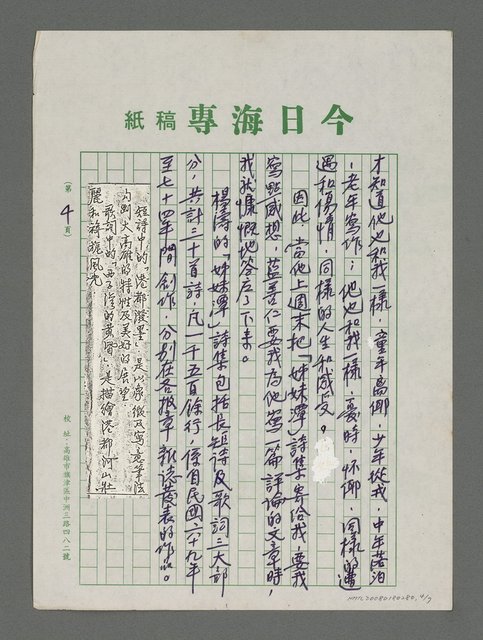 今日海專 稿紙
才知道他也和我一樣，童年离鄉，少年從戎，中年落泊
，老年寫作；他也和我一樣，憂時，怀鄉，同樣的遭
遇和傷情，同樣的人生和感受。
因此，當他上週末把「姊妹潭」詩集寄給我，要我
寫點感想，藍善仁要我為他寫一篇評論的文章時，
我就慷慨地答应了下來。
楊濤的「姊妹潭」詩集包括長短詩及歌詞二大部
分，共計二十首詩，凡一千五百餘行，係自民國六十九年
至七十四年間創作，分別在各報章雜誌發表的作品。
短詩中的「港都潑墨」是以象徵及寫意筆法
內刻大高雄的特性及美好的展望。
歌詞中的「西子湾的黄昏」是描繪港都河山壯
麗和旖旎風光。
（第4頁）
校址：高雄市旗津區中洲三路四八二號
NMTL20080180280, 4/7